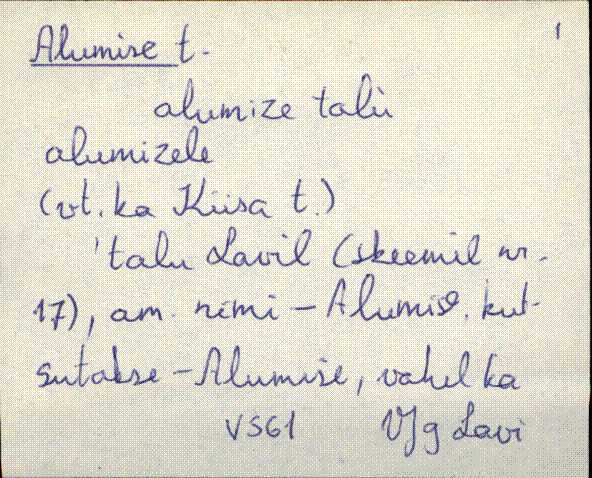 Alumise t. 1
alumize talù
alumizele
(vt. ka Kiisa t.)
'talu Lavil (skeemil nr.
17), am. nimi - Alumise, kut-
sutakse - Alumise, vahel ka
VS61 VJg Lavi